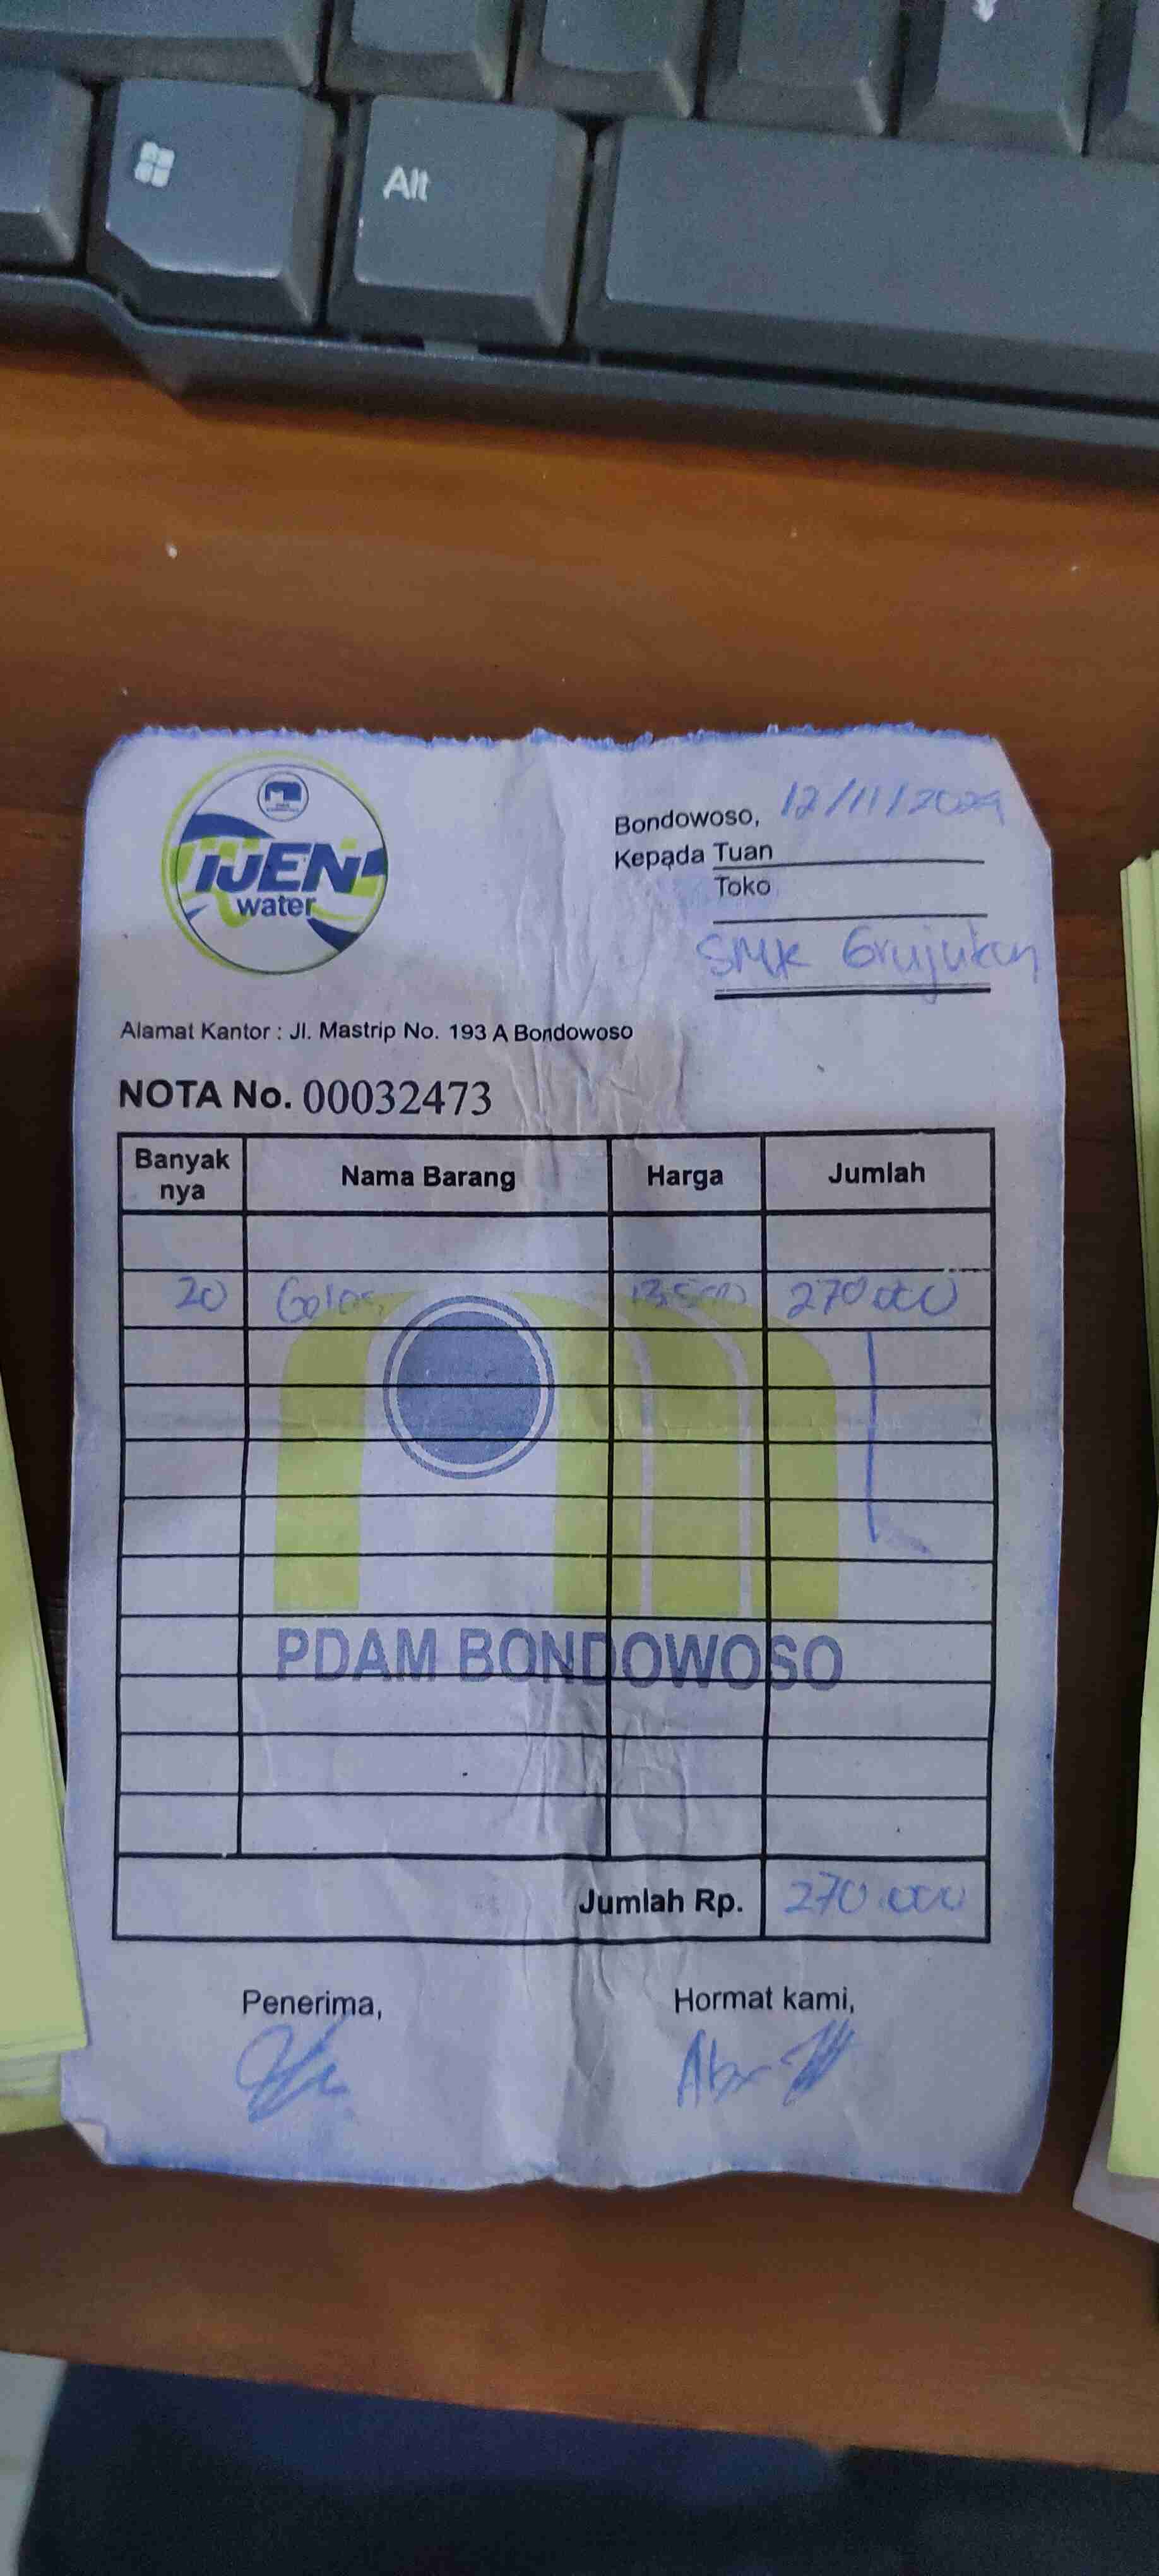 Alt
IJEN
water
Bondowoso, 12/11/2024
Kepada Tuan
Toko
SMK Grujukan
Alamat Kantor : Jl. Mastrip No. 193 A Bondowoso
NOTA No. 00032473
Banyak nya Nama Barang Harga Jumlah
20 Galon 13.500 270.000
PDAM BONDOWOSO
Jumlah Rp. 270.000
Penerima, Hormat kami,